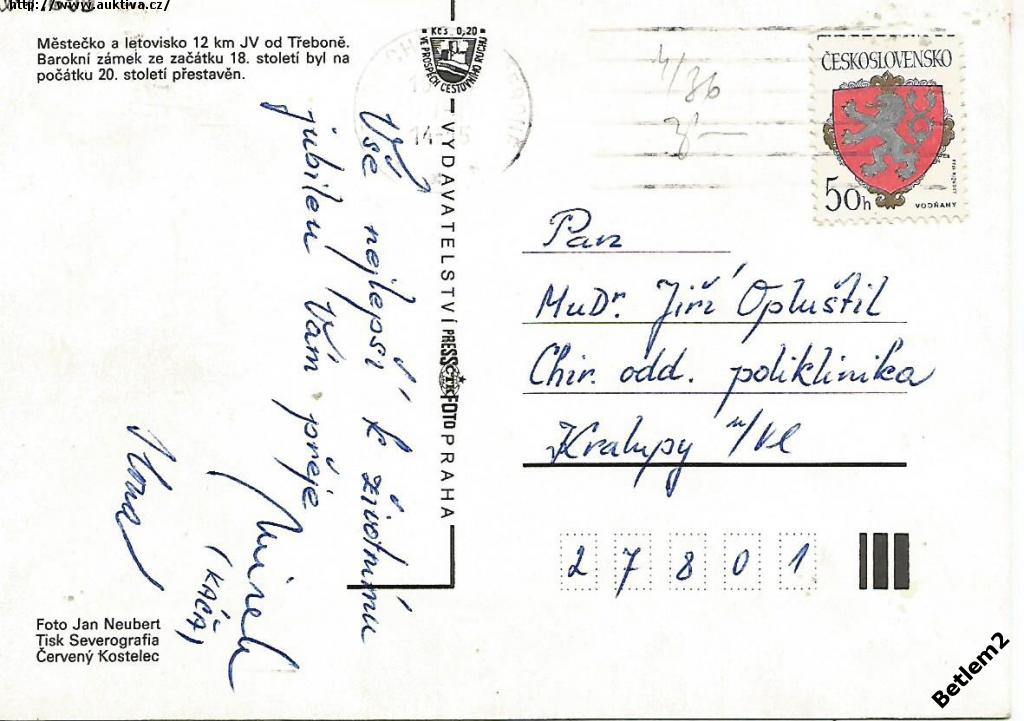 http://www.auktiva.cz/
Městečko a letovisko 12 km JV od Třeboně.
Barokní zámek ze začátku 18. století byl na
počátku 20. století přestavěn.
Kčs 0,20
VE PROSPĚCH CESTOVNÍHO RUCHU
14-15
4/86
3,-
ČESKOSLOVENSKO
50h
VODŇANY
Vše nejlepší k životnímu
jubileu Vám přeje
Mirek
(KÁČA)
Ilona
VYDAVATELSTVÍ PRESSFOTO PRAHA
ČTK
Pan
MuDr. Jiří Opluštil
Chir. odd. poliklinika
Kralupy n/Vl
27801
Foto Jan Neubert
Tisk Severografia
Červený Kostelec
Betlem2